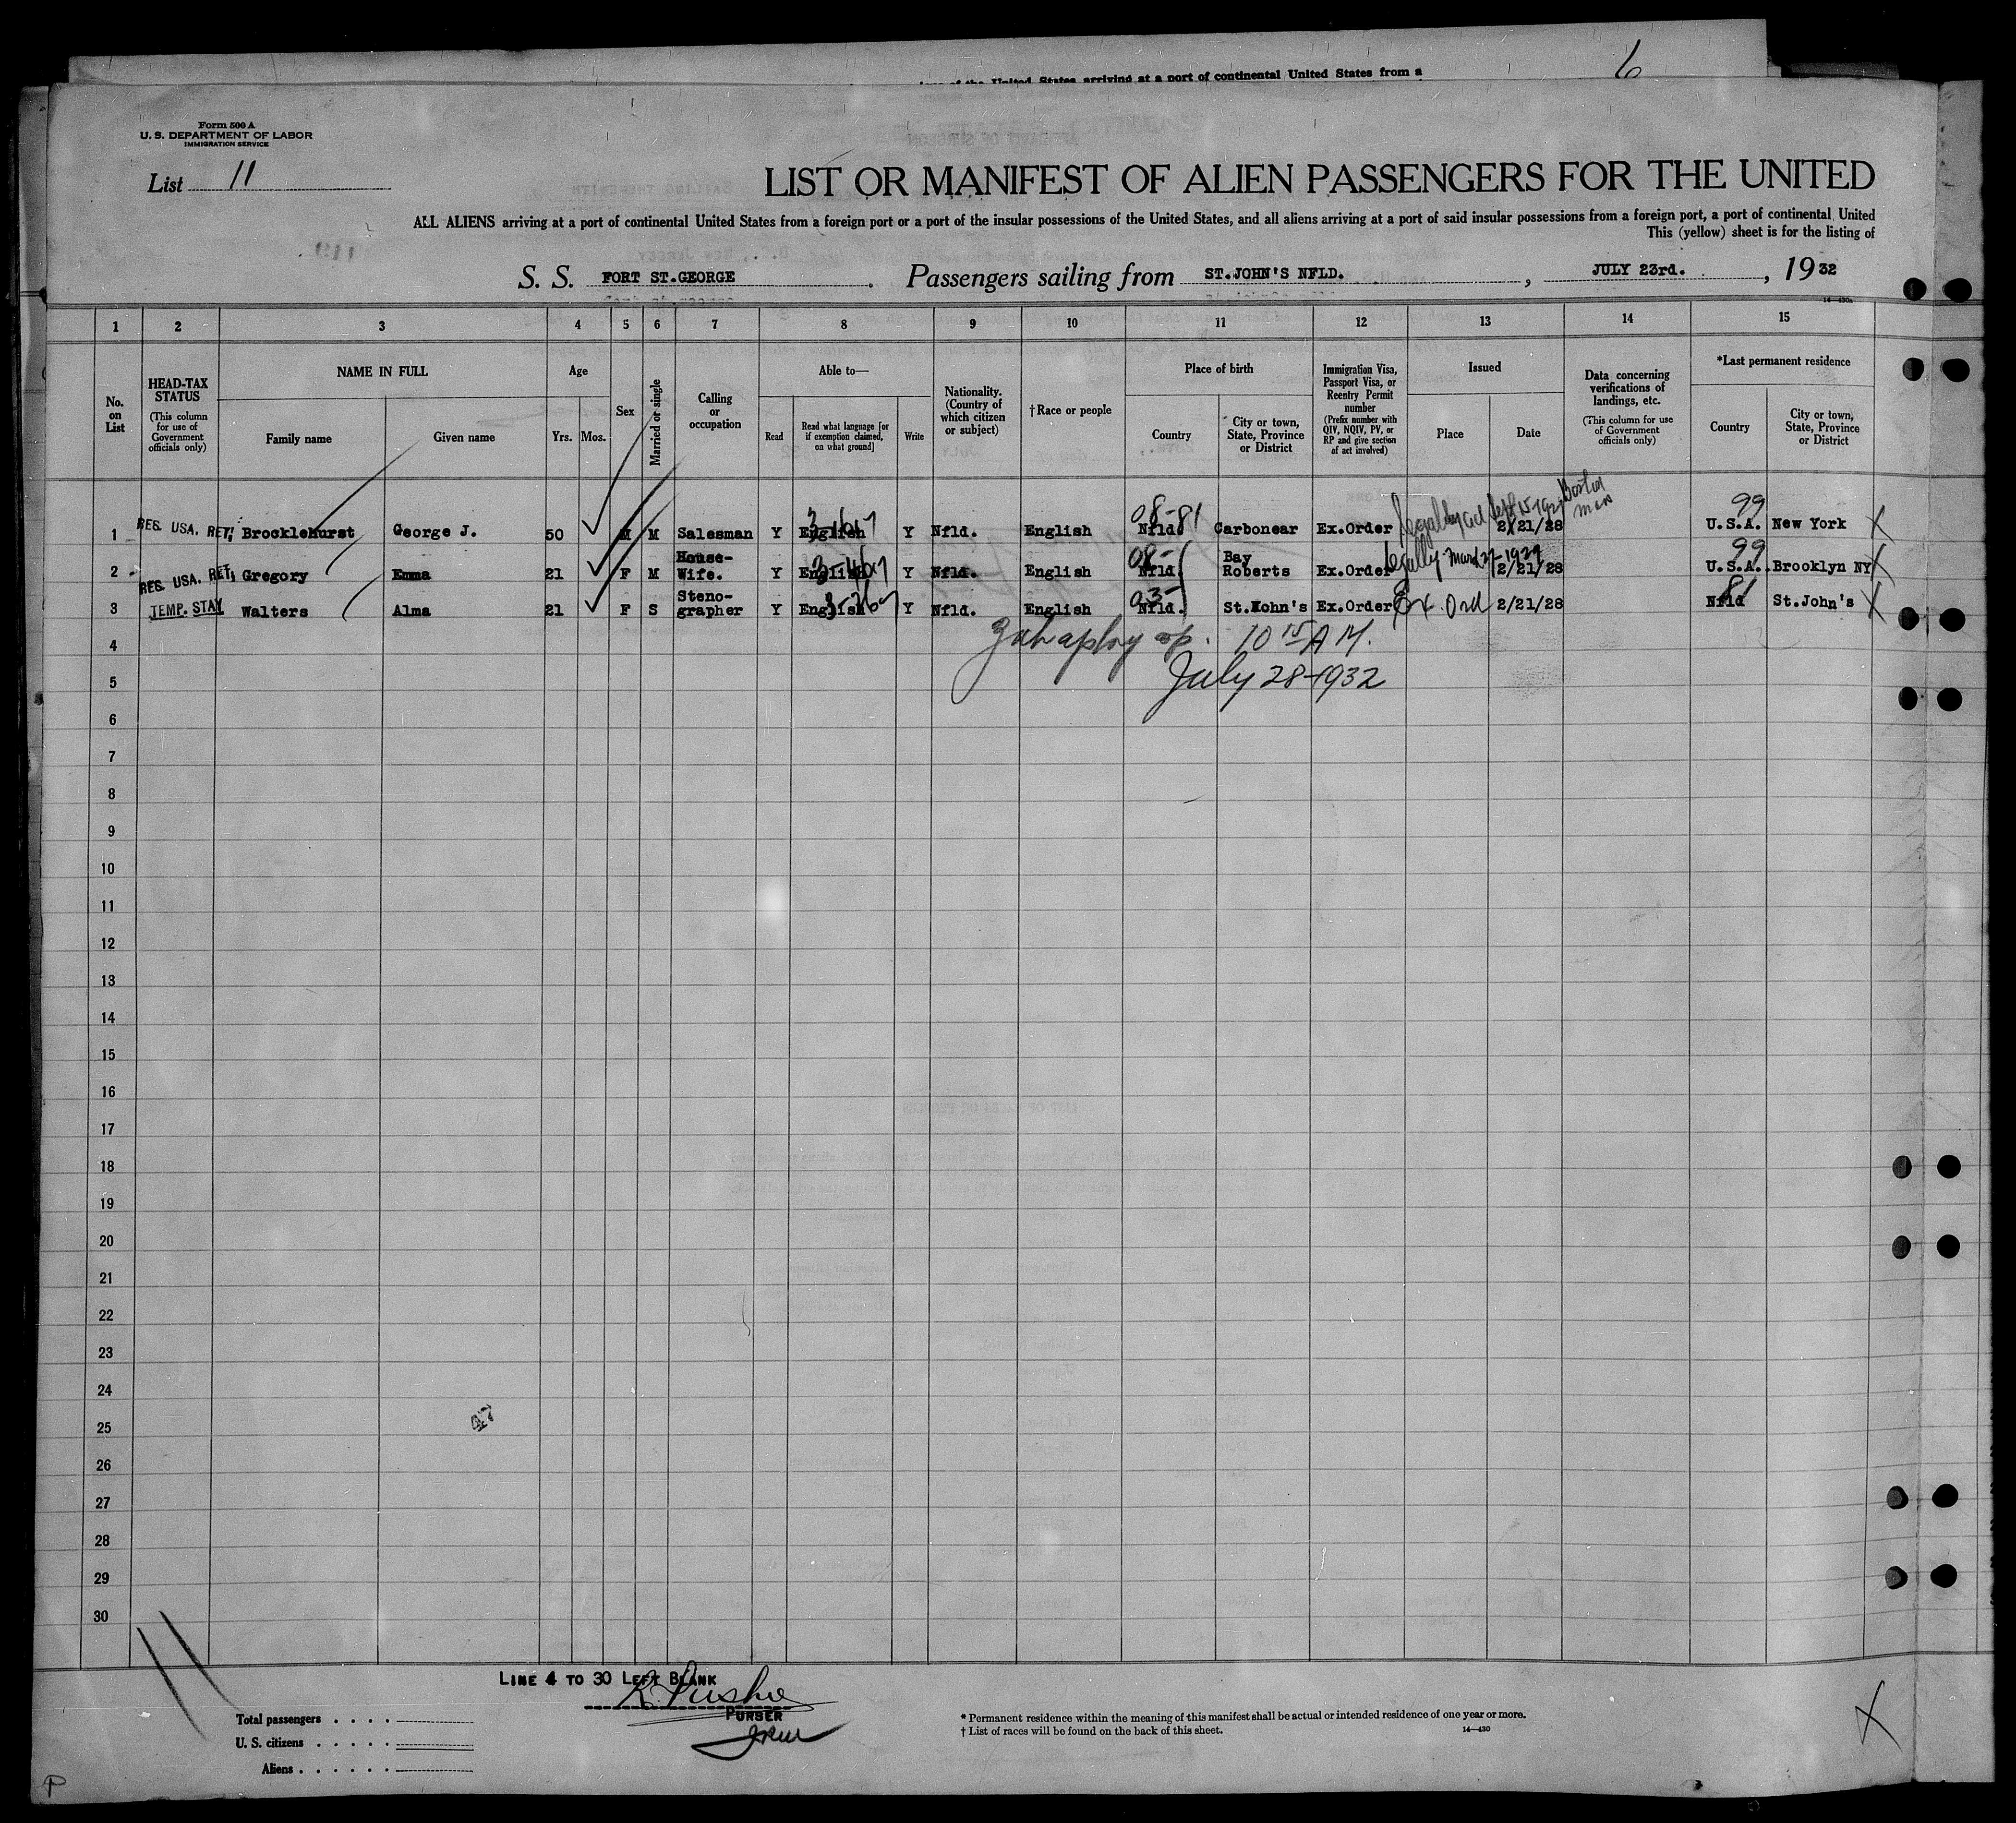 of the United States arriving at a port of continental United States from a
6
Form 500 A
U. S. DEPARTMENT OF LABOR
IMMIGRATION SERVICE
List 11
LIST OR MANIFEST OF ALIEN PASSENGERS FOR THE UNITED
ALL ALIENS arriving at a port of continental United States from a foreign port or a port of the insular possessions of the United States, and all aliens arriving at a port of said insular possessions from a foreign port, a port of continental United
This (yellow) sheet is for the listing of
S. S. FORT ST.GEORGE. Passengers sailing from ST.JOHN'S NFLD., JULY 23rd., 1932
1 2 3 4 5 6 7 8 9 10 11 12 13 14 15
No. on List
HEAD-TAX STATUS (This column for use of Government officials only)
NAME IN FULL
Family name
Given name
Age
Yrs. Mos.
Sex
Married or single
Calling or occupation
Able to—
Read
Read what language [or if exemption claimed, on what ground]
Write
Nationality. (Country of which citizen or subject)
†Race or people
Place of birth
Country
City or town, State, Province or District
Immigration Visa, Passport Visa, or Reentry Permit number (Prefix number with QIV, NQIV, PV, or RP and give section of act involved)
Issued
Place
Date
Data concerning verifications of landings, etc. (This column for use of Government officials only)
*Last permanent residence
Country
City or town, State, Province or District
1 RES. USA. RET. Brocklehurst George J. 50 M M Salesman Y English Y Nfld. English 08-81 Nfld. Carbonear Ex.Order 2/21/28 Boston Mass 99 U.S.A. New York X
2 RES. USA. RET. Gregory Emma 21 F M House-Wife. Y English Y Nfld. English 08- Nfld. Bay Roberts Ex.Order legally 2/21/28 99 U.S.A. Brooklyn NY X
3 TEMP. STAY Walters Alma 21 F S Steno-grapher Y English Y Nfld. English 03- Nfld. St.John's Ex.Order Ex Ord 2/21/28 81 Nfld St.John's X
10 15 A M.
July 28-1932
4
5
6
7
8
9
10
11
12
13
14
15
16
17
18
19
20
21
22
23
24
25
26
27
28
29
30
47
LINE 4 TO 30 LEFT BLANK
PURSER
Total passengers . . . .
U. S. citizens . . . . .
Aliens . . . . . .
* Permanent residence within the meaning of this manifest shall be actual or intended residence of one year or more.
† List of races will be found on the back of this sheet.
14—430
X